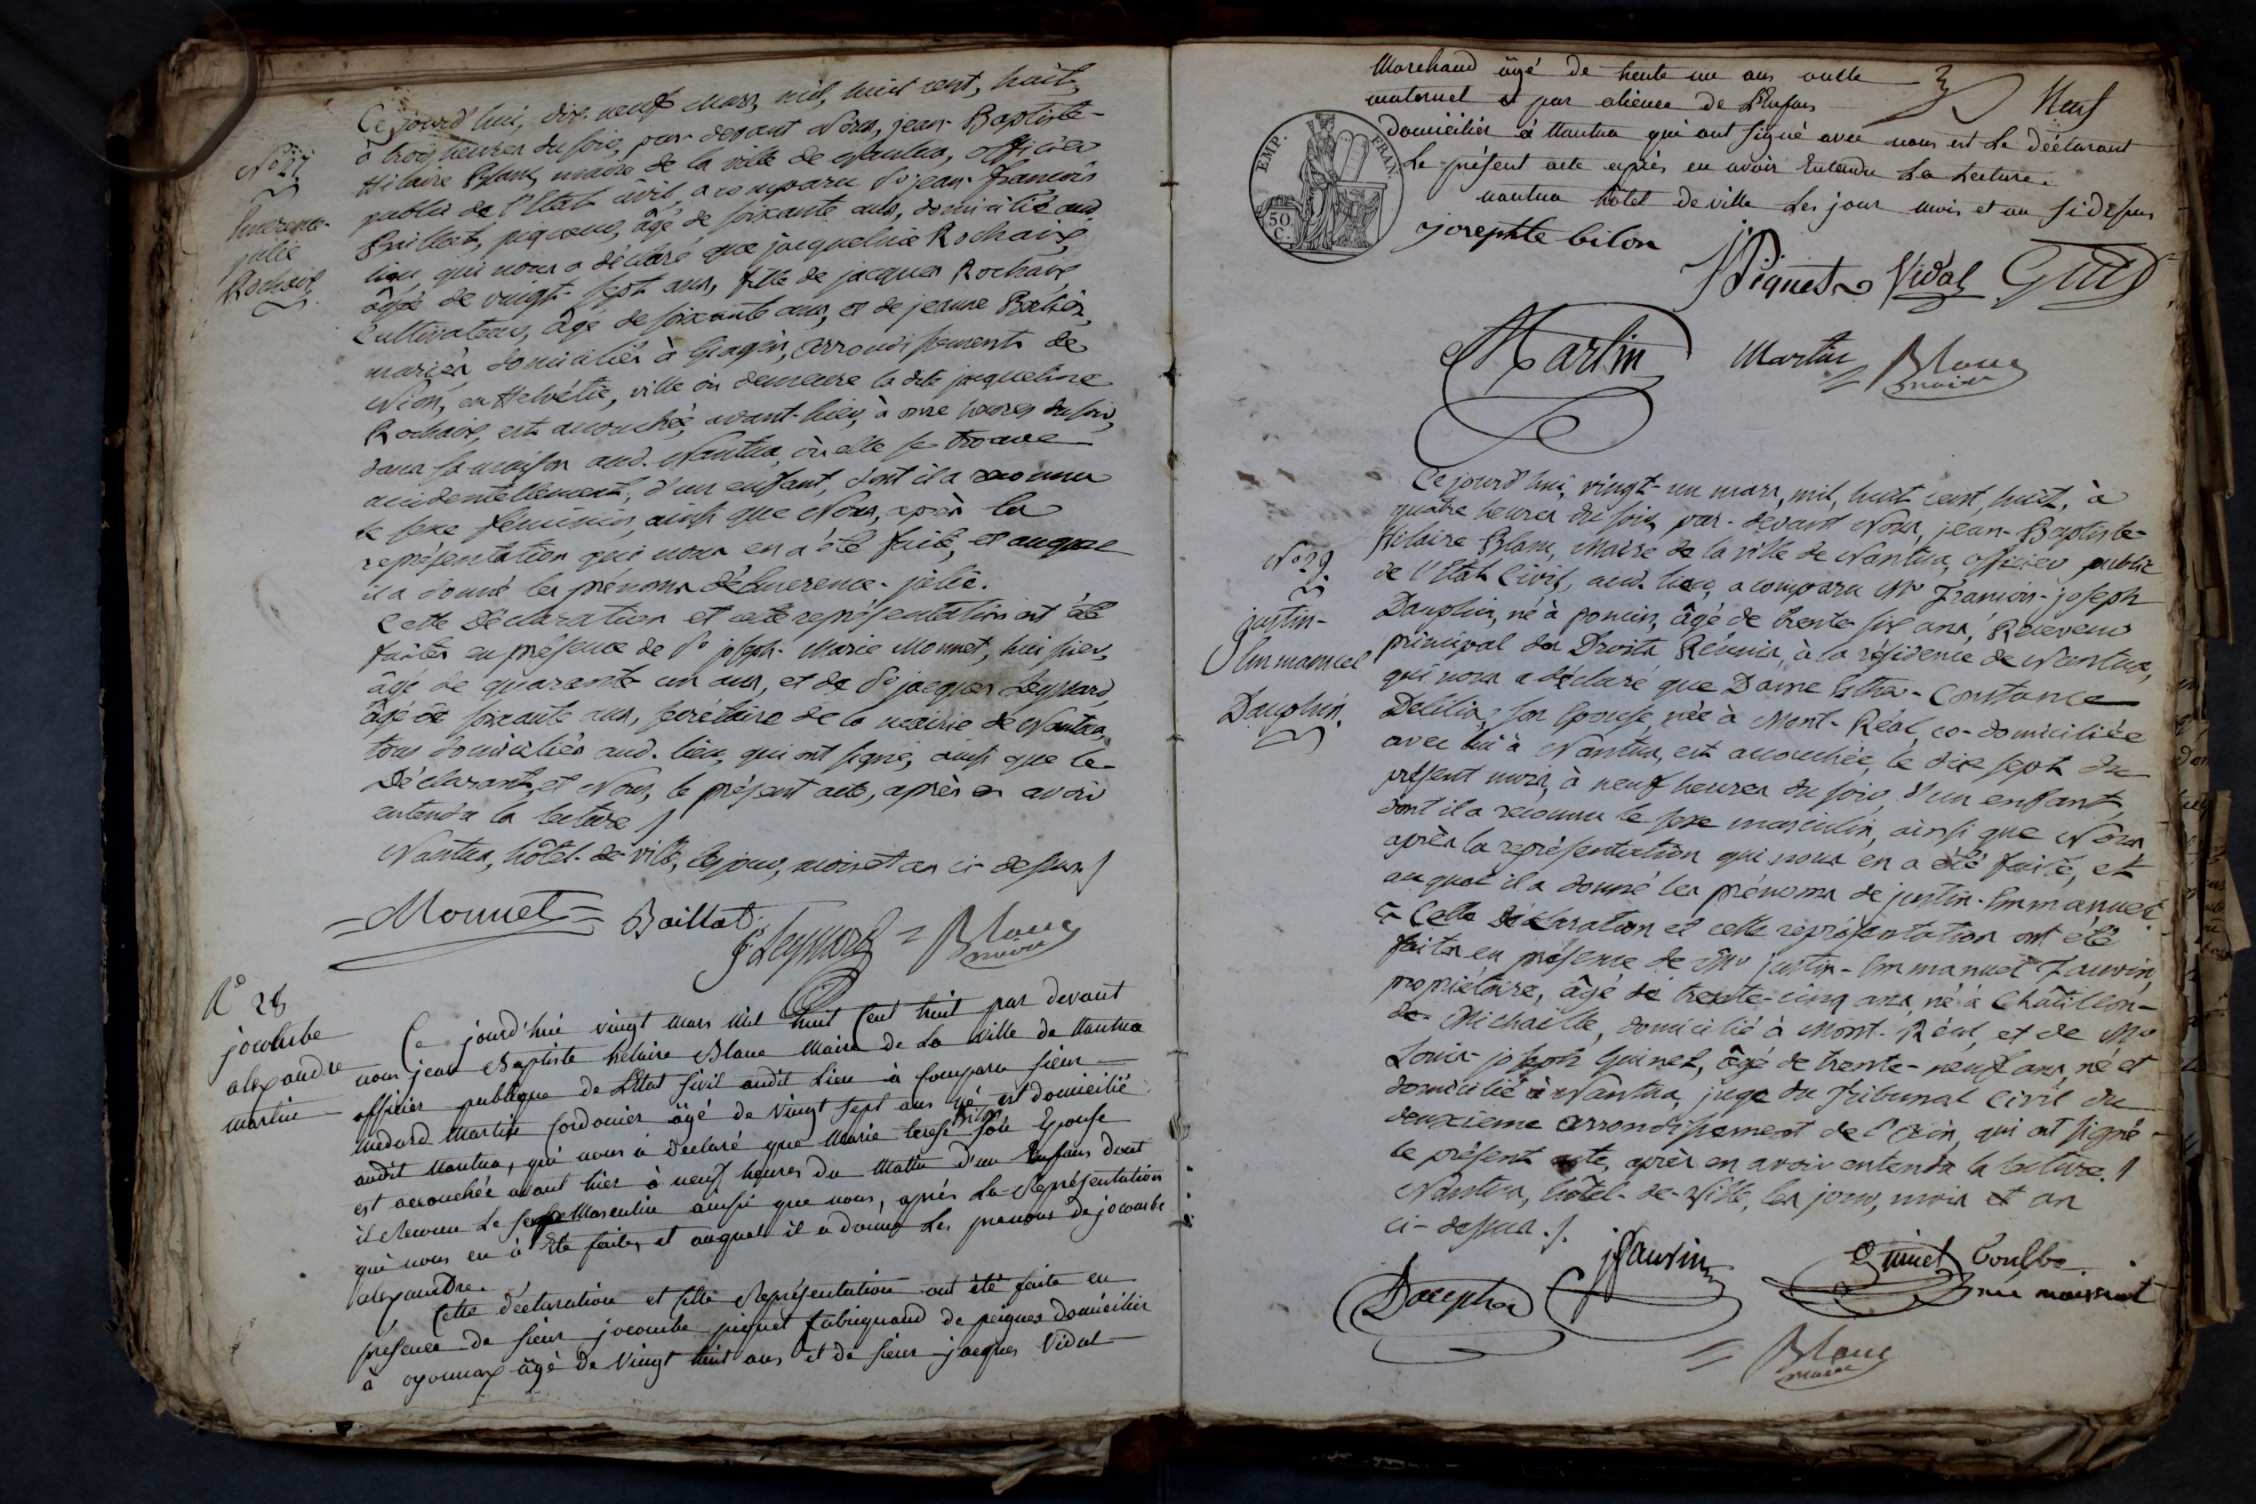 Ce jourd'hui, dix-neuf mars, mil, huit cent, huit,
à trois heures du soir, par-devant Nous, jean-Baptiste-
Hilaire Blanc, maire de la ville de Nantua, officier
public de l'Etat civil, a comparu Sr jean-françois
Baillat, âgé de soixante ans, domicilié aud.
lieu, qui nous a déclaré que jacqueline Rochaix,
âgée de vingt-sept ans, fille de jacques Rochaix,
Cultivateur, âgé de soixante ans, et de jeanne
mariés, domiciliés à arrondissement de
Nion, en Helvétie, ville où demeure la dite jacqueline
Rochaix, est accouchée, avant-hier, à onze heures du soir,
dans sa maison aud. Nantua, où elle se trouve
accidentellement, d'un enfant, dont il a reconnu
le sexe féminin, ainsi que Nous, après la
représentation qui nous en a été faite, et auquel
il a donné les prénoms d'Emerence-julie.
Cette déclaration et cette représentation ont été
faites en présence de Sr joseph-Marie Monnet, huissier,
âgé de quarante un ans, et de Sr jacques Leyssard,
âgé de soixante ans, secrétaire de la mairie de Nantua,
tous domiciliés aud. lieu, qui ont signé, ainsi que le
Déclarant, et Nous, le présent acte, après en avoir
entendu la lecture /
Nantua, hôtel-de-ville, les jour, mois et an ci-dessus /
No 27
Emerence-
julie
Rochaix
=Monnet= Baillat. J. Leyssard = Blanc
maire
No 28
jocombe
alexandre
martin
Ce jourd'hui vingt mars mil huit Cent huit par devant
nous jean Baptiste hilaire Blanc Maire de La Ville de Nantua
officier publique de L'Etat Sivil audit Lieu à Comparu sieur
médard Martin Cordonier âgé de Vingt sept ans né est domicilié
audit Nantua, qui nous à déclaré que Marie terese Bilon son Epouse
est accouchée avant hier à neuf heures du Matin d'un Enfans dont
il Reconu Le sexe Masculin ainsi que nous, après La Représentation
qui nous en à Eté faite, et auquel il a donné Les prenoms de jocombe
alexandre.
Cette déclaration et sette Représentation ont été faite en
présence de sieur jocombe piquet fabriquand de peignes domicilier
à oyonnax âgé de Vingt huit ans et de sieur jacques Vidal
Neuf
Marchand âgé de trente un ans oncle
maternel par alience de L'Enfans
domicilier à Nantua qui ont signé avec nous est Le déclarant
Le présent acte après en avoir Entendu La Lecture.
nantua hôtel de ville Les jour mois et an sidesus
EMP. FRAN.
50
C.
josephte bilon
Piquet Vidal
Martin Martin = Blanc
maire
No 29.
justin-
Emmanuel
Dauphin.
Ce jourd'hui, vingt-un mars, mil, huit cent, huit, à
quatre heures du soir, par-devant Nous, jean-Baptiste-
Hilaire Blanc, Maire de la ville de Nantua, officier public
de l'Etat Civil, aud. lieu, a comparu Mr François-joseph
Dauphin, né à poncin, âgé de trente-six ans, Receveur
principal des Droits Réunis, à la résidence de Nantua,
qui nous a déclaré que Dame Esther-Constance
Delilia, son épouse, née à Mont-Réal, co-domiciliée
avec lui à Nantua, est accouchée, le dix sept du
présent mars, à neuf heures du soir, d'un enfant,
dont il a reconnu le sexe masculin, ainsi que Nous,
après la représentation qui nous en a été faite, et
auquel il a donné les prénoms de justin-Emmanuel.
Cette déclaration et cette représentation ont été
faites en présence de Mr justin-Emmanuel Jauvin,
propriétaire, âgé de trente-cinq ans, né à Châtillon-
de-Michaille, domicilié à Mont-Réal, et de Mr
Louis-joseph Guinet, âgé de trente-neuf ans, né et
domicilié à Nantua, juge du Tribunal Civil du
deuxieme arrondissement de l'Ain, qui ont signé
le présent acte, après en avoir entendu la lecture. /
Nantua, hôtel-de-ville, les jour, mois et an
ci-dessus. /.
Dauphin Guinet
née
= Blanc
maire